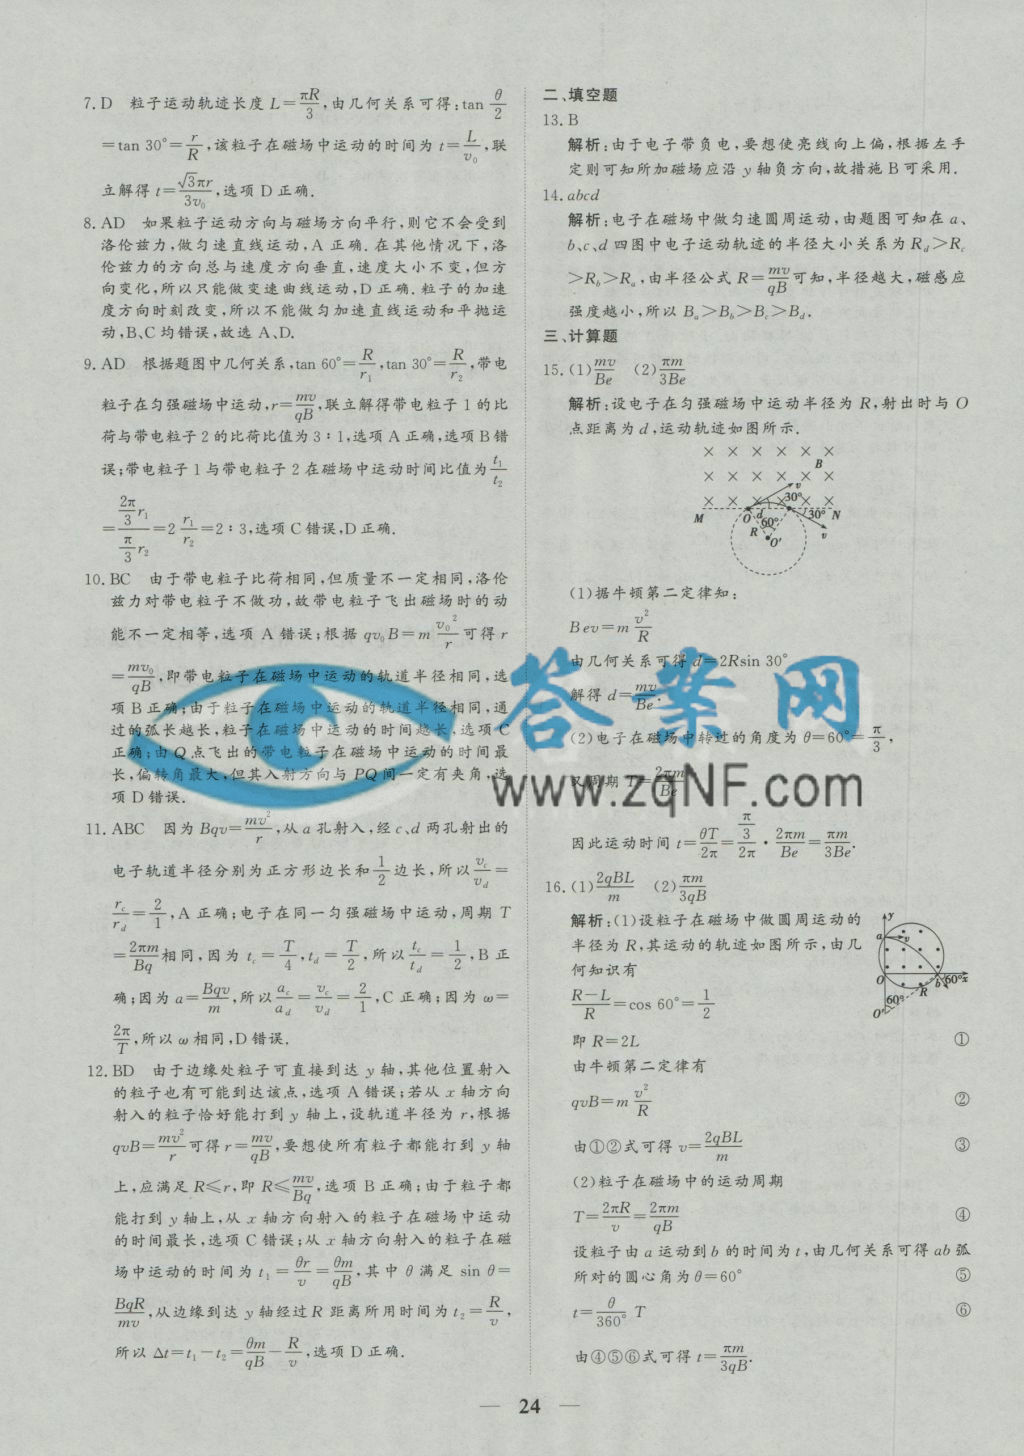 7. D　粒子运动轨迹长度 L=πR/3,由几何关系可得:tan θ/2
=tan 30°=r/R,该粒子在磁场中运动的时间为 t=L/v₀,联
立解得 t=√3πr/3v₀,选项 D 正确.
8. AD　如果粒子运动方向与磁场方向平行,则它不会受到
洛伦兹力,做匀速直线运动,A 正确.在其他情况下,洛
伦兹力的方向总与速度方向垂直,速度大小不变,但方
向变化,所以只能做变速曲线运动,D 正确.粒子的加速
度方向时刻改变,所以不能做匀加速直线运动和平抛运
动,B、C 均错误,故选 A、D.
9. AD　根据题图中几何关系,tan 60°=R/r₁,tan 30°=R/r₂,带电
粒子在匀强磁场中运动,r=mv/qB,联立解得带电粒子 1 的比
荷与带电粒子 2 的比荷比值为 3∶1,选项 A 正确,选项 B 错
误;带电粒子 1 与带电粒子 2 在磁场中运动时间比值为 t₁/t₂
=(2π/3 r₁)/(π/3 r₂)=2 r₁/r₂=2∶3,选项 C 错误,D 正确.
10. BC　由于带电粒子比荷相同,但质量不一定相同,洛伦
兹力对带电粒子不做功,故带电粒子飞出磁场时的动
能不一定相等,选项 A 错误;根据 qv₀B=m v₀²/r 可得 r
=mv₀/qB,即带电粒子在磁场中运动的轨道半径相同,选
项 B 正确;由于粒子在磁场中运动的轨道半径相同,通
过的弧长越长,粒子在磁场中运动的时间越长,选项 C
正确;由 Q 点飞出的带电粒子在磁场中运动的时间最
长,偏转角最大,但其入射方向与 PQ 间一定有夹角,选
项 D 错误.
11. ABC　因为 Bqv=mv²/r,从 a 孔射入,经 c、d 两孔射出的
电子轨道半径分别为正方形边长和 1/2 边长,所以 v_c/v_d=
r_c/r_d=2/1,A 正确;电子在同一匀强磁场中运动,周期 T
=2πm/Bq 相同,因为 t_c=T/4,t_d=T/2,所以 t_c/t_d=1/2,B 正
确;因为 a=Bqv/m,所以 a_c/a_d=v_c/v_d=2/1,C 正确;因为 ω=
2π/T,所以 ω 相同,D 错误.
12. BD　由于边缘处粒子可直接到达 y 轴,其他位置射入
的粒子也有可能到达该点,选项 A 错误;若从 x 轴方向
射入的粒子恰好能打到 y 轴上,设轨道半径为 r,根据
qvB=mv²/r 可得 r=mv/qB,要想使所有粒子都能打到 y 轴
上,应满足 R≤r,即 R≤mv/Bq,选项 B 正确;由于粒子都
能打到 y 轴上,从 x 轴方向射入的粒子在磁场中运动
的时间最长,选项 C 错误;从 x 轴方向射入的粒子在磁
场中运动的时间为 t₁=θr/v=θm/qB,其中 θ 满足 sin θ=
BqR/mv,从边缘到达 y 轴经过 R 距离所用时间为 t₂=R/v,
所以 Δt=t₁-t₂=θm/qB-R/v,选项 D 正确.
二、填空题
13. B
解析:由于电子带负电,要想使亮线向上偏,根据左手
定则可知所加磁场应沿 y 轴负方向,故措施 B 可采用.
14. abcd
解析:电子在磁场中做匀速圆周运动,由题图可知在 a、
b、c、d 四图中电子运动轨迹的半径大小关系为 R_d>R_c
>R_b>R_a,由半径公式 R=mv/qB 可知,半径越大,磁感应
强度越小,所以 B_a>B_b>B_c>B_d.
三、计算题
15. (1)mv/Be　(2)πm/3Be
解析:设电子在匀强磁场中运动半径为 R,射出时与 O
点距离为 d,运动轨迹如图所示.
B
v
30°
M O d 30° N
60°
R
v
O'
(1)据牛顿第二定律知:
Bev=m v²/R
由几何关系可得 d=2Rsin 30°
解得 d=mv/Be.
(2)电子在磁场中转过的角度为 θ=60°=π/3,
又周期 T=2πm/Be
因此运动时间 t=θT/2π=(π/3)/2π·2πm/Be=πm/3Be.
16. (1)2qBL/m　(2)πm/3qB
解析:(1)设粒子在磁场中做圆周运动的
半径为 R,其运动的轨迹如图所示,由几
何知识有
y
a v
O
b 60° x
60° R
O'
(R-L)/R=cos 60°=1/2
即 R=2L　①
由牛顿第二定律有
qvB=m v²/R　②
由①②式可得 v=2qBL/m　③
(2)粒子在磁场中的运动周期
T=2πR/v=2πm/qB　④
设粒子由 a 运动到 b 的时间为 t,由几何关系可得 ab 弧
所对的圆心角为 θ=60°　⑤
t=θ/360° T　⑥
由④⑤⑥式可得 t=πm/3qB.
答案网
www.zqNF.com
— 24 —